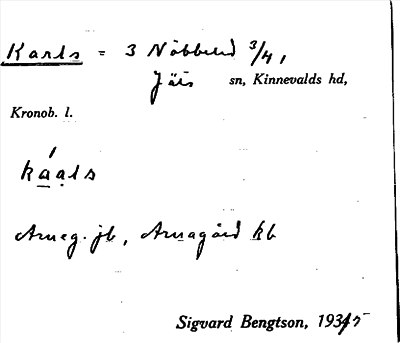 Karls = 3 Nöbbeled 3/4,
Jäts sn, Kinnevalds hd,
Kronob. l.
káals
Arneg. jb, Arnagård kb
Sigvard Bengtson, 1934/5